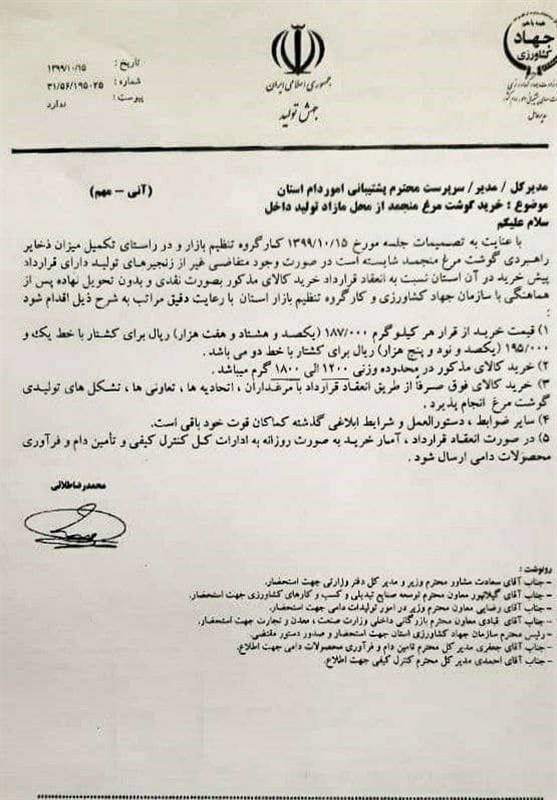 همه با هم
جهاد
کشاورزی
جمهوری اسلامی ایران
جهش تولید
تاریخ : ۱۳۹۹/۱۰/۱۵
شماره : ۳۱/۵۶/۱۹۵۰۲۵
پیوست : ندارد
مدیرعامل
مدیر کل / مدیر / سرپرست محترم پشتیبانی امور دام استان (آنی – مهم)
موضوع : خرید گوشت مرغ منجمد از محل مازاد تولید داخل
سلام علیکم
با عنایت به تصمیمات جلسه مورخ ۱۳۹۹/۱۰/۱۵ کارگروه تنظیم بازار و در راستای تکمیل میزان ذخایر
راهبردی گوشت مرغ منجمد شایسته است در صورت وجود متقاضی غیر از زنجیرهای تولید دارای قرارداد
پیش خرید در آن استان نسبت به انعقاد قرارداد خرید کالای مذکور بصورت نقدی و بدون تحویل نهاده پس از
هماهنگی با سازمان جهاد کشاورزی و کارگروه تنظیم بازار استان با رعایت دقیق مراتب به شرح ذیل اقدام شود
:
۱) قیمت خرید از قرار هر کیلوگرم ۱۸۷/۰۰۰ (یکصد و هشتاد و هفت هزار) ریال برای کشتار با خط یک و
۱۹۵/۰۰۰ (یکصد و نود و پنج هزار) ریال برای کشتار با خط دو می باشد .
۲) خرید کالای مذکور در محدوده وزنی ۱۲۰۰ الی ۱۸۰۰ گرم میباشد .
۳) خرید کالای فوق صرفاً از طریق انعقاد قرارداد با مرغداران ، اتحادیه ها ، تعاونی ها ، تشکل های تولیدی
گوشت مرغ انجام پذیرد .
۴) سایر ضوابط ، دستورالعمل و شرایط ابلاغی گذشته کماکان قوت خود باقی است.
۵) در صورت انعقاد قرارداد ، آمار خرید به صورت روزانه به ادارات کل کنترل کیفی و تأمین دام و فرآوری
محصولات دامی ارسال شود .
محمدرضا طلائی
رونوشت :
- جناب آقای سعادت مشاور محترم وزیر و مدیر کل دفتر وزارتی جهت استحضار.
- جناب آقای گیلانپور معاون محترم توسعه صنایع تبدیلی و کسب و کارهای کشاورزی جهت استحضار.
- جناب آقای رضایی معاون محترم وزیر در امور تولیدات دامی جهت استحضار.
- جناب آقای قبادی معاون محترم بازرگانی داخلی وزارت صنعت ، معدن و تجارت جهت استحضار.
- رئیس محترم سازمان جهاد کشاورزی استان جهت استحضار و صدور دستور مقتضی.
- جناب آقای جعفری مدیر کل محترم تامین دام و فرآوری محصولات دامی جهت اطلاع.
- جناب آقای احمدی مدیر کل محترم کنترل کیفی جهت اطلاع.